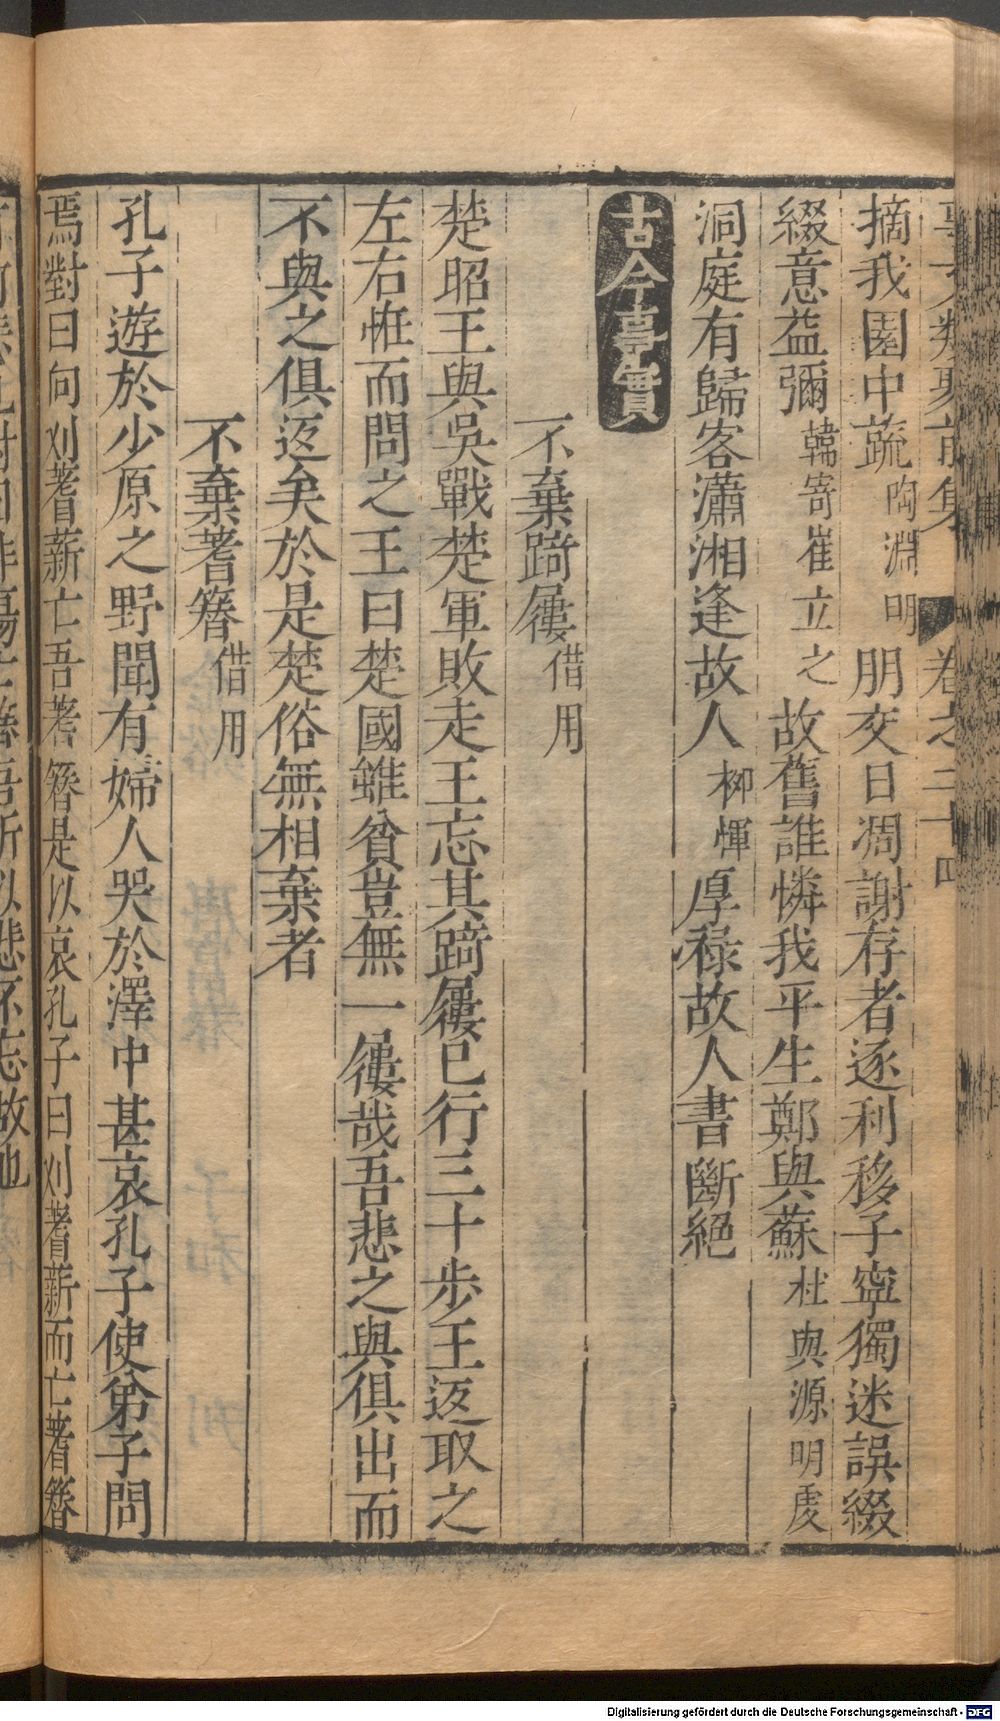 事文類聚前集 卷之二十四
摘我園中蔬陶淵明朋交日凋謝存者逐利移子寧獨迷誤綴
綴意益彌韓寄崔立之故舊誰憐我平生鄭與蘇杜與源明虔
洞庭有歸客瀟湘逢故人柳惲厚祿故人書斷絕
古今事實
不棄踦屨借用
楚昭王與吳戰楚軍敗走王忘其踦屨已行三十步王返取之
左右恠而問之王曰楚國雖貧豈無一屨哉吾悲之與俱出而
不與之俱返矣於是楚俗無相棄者
不棄蓍簪借用
孔子遊於少原之野聞有婦人哭於澤中甚哀孔子使弟子問
焉對曰向刈蓍薪亡吾蓍簪是以哀孔子曰刈蓍薪而亡蓍簪
吾所以悲不忘故也
Digitalisierung gefördert durch die Deutsche Forschungsgemeinschaft - DFG